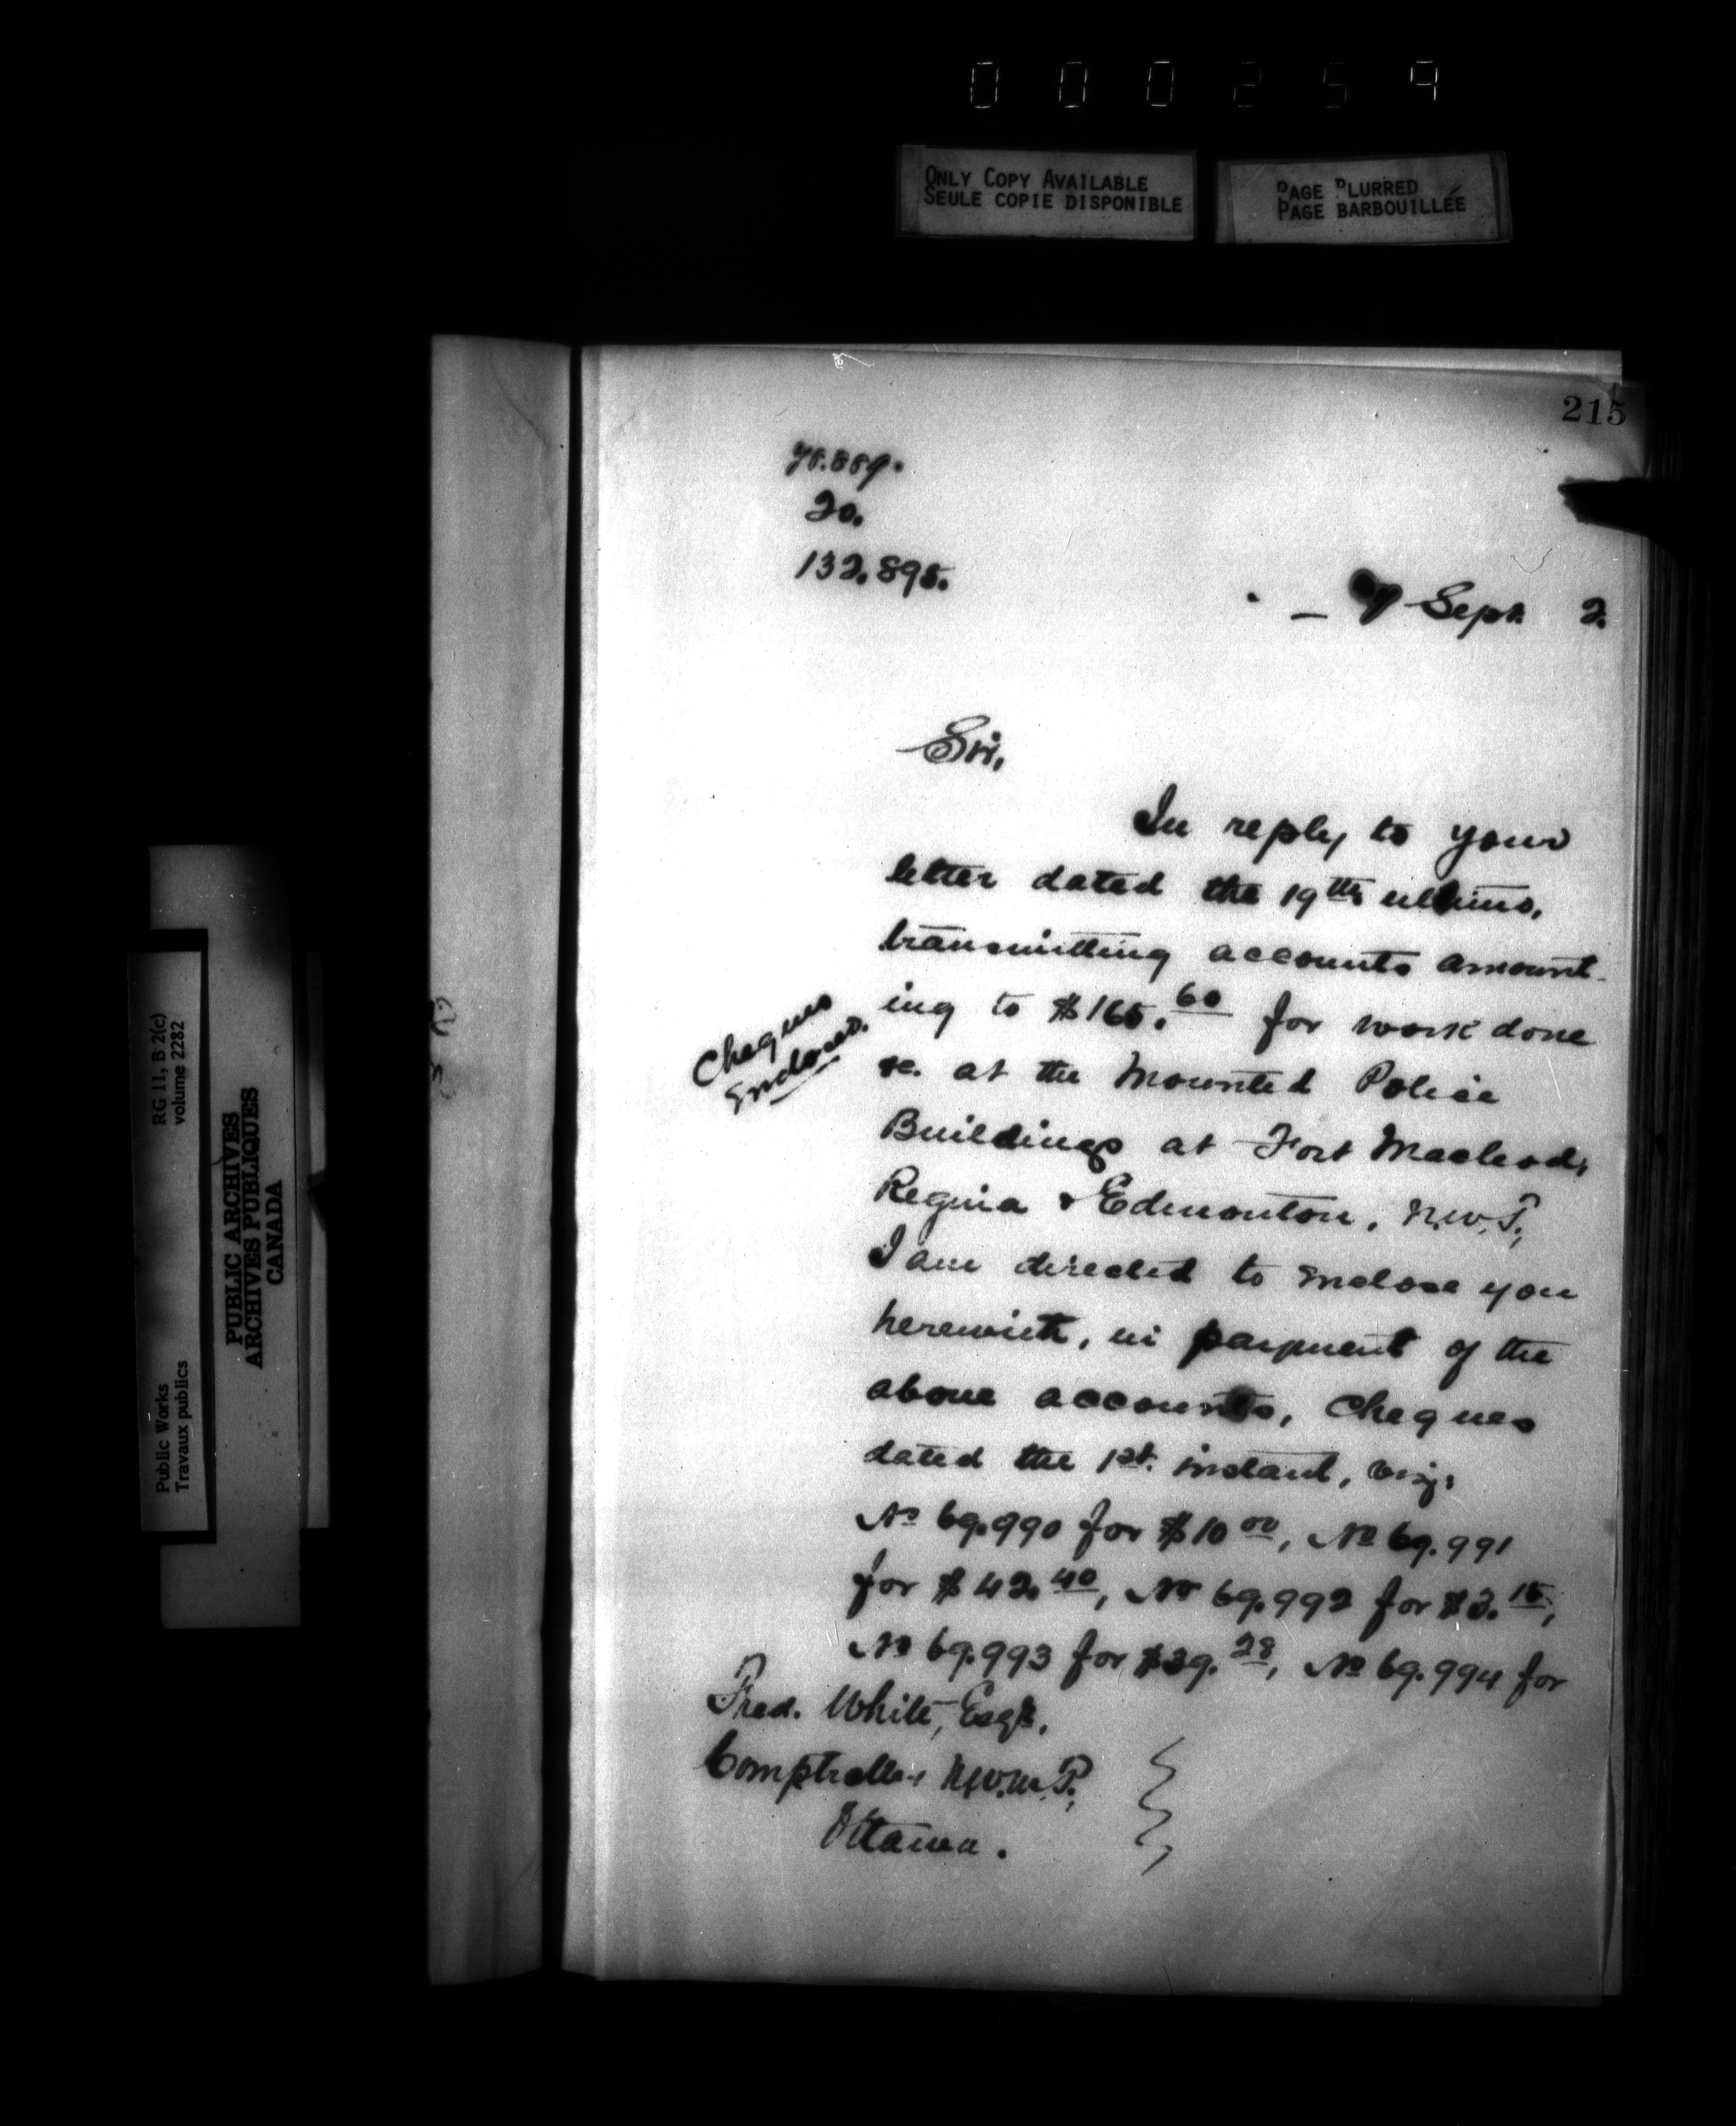 000259
ONLY COPY AVAILABLE
SEULE COPIE DISPONIBLE
PAGE BLURRED
PAGE BARBOUILLÉE
215
20.
132.895.
Sept. 2.
Sir,
In reply to your
letter dated the 19th ultimo,
transmitting accounts amount-
ing to $165.60 for work done
&c. at the Mounted Police
Buildings at Fort Macleod,
Regina & Edmonton, N.W.T.,
I am directed to enclose you
herewith, in payment of the
above accounts, Cheques
dated the 1st. instant, viz:
No 69.990 for $10 00, No 69.991
for $42.40, No 69.992 for $3.15,
No 69.993 for $39.28, No 69.994 for
Cheques
Enclosed.
Fred. White, Esqr.
Comptroller N.W.M.P.,
Ottawa.
RG 11, B 2(c)
volume 2282
Public Works
Travaux publics
PUBLIC ARCHIVES
ARCHIVES PUBLIQUES
CANADA